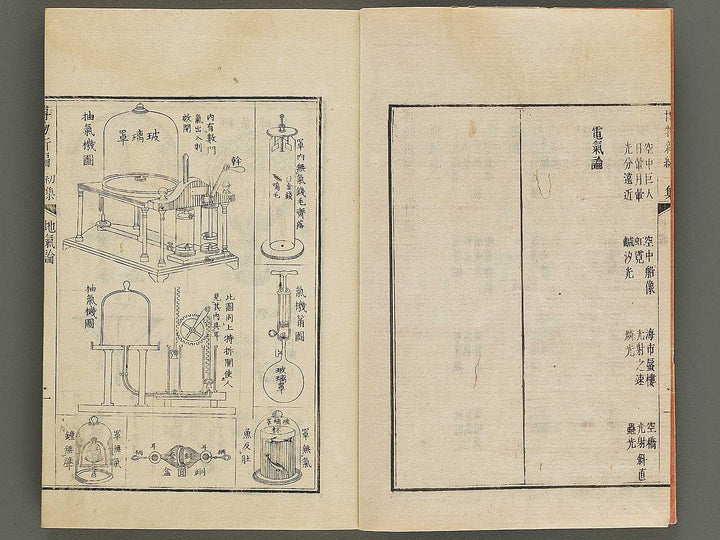 空中巨人
空中船像
海市蜃樓
空橋
日暈月暈
虹霓
光射之速
光射斜直
光分遠近
鹹汐光
燐光
蟲光
電氣論
罩內無氣錢毛齊落
金錢
鳥毛
內有數門
氣出入則
啟閉
玻璃罩
抽氣機圖
氣機筩圖
玻璃罩
此圖同上特拆開使人
見其內具耳
抽氣機圖
罩無氣
魚反肚
玻璃罩
耳
銅圓盒
耳
罩無氣
鐘無聲
博物新編 初集
地氣論